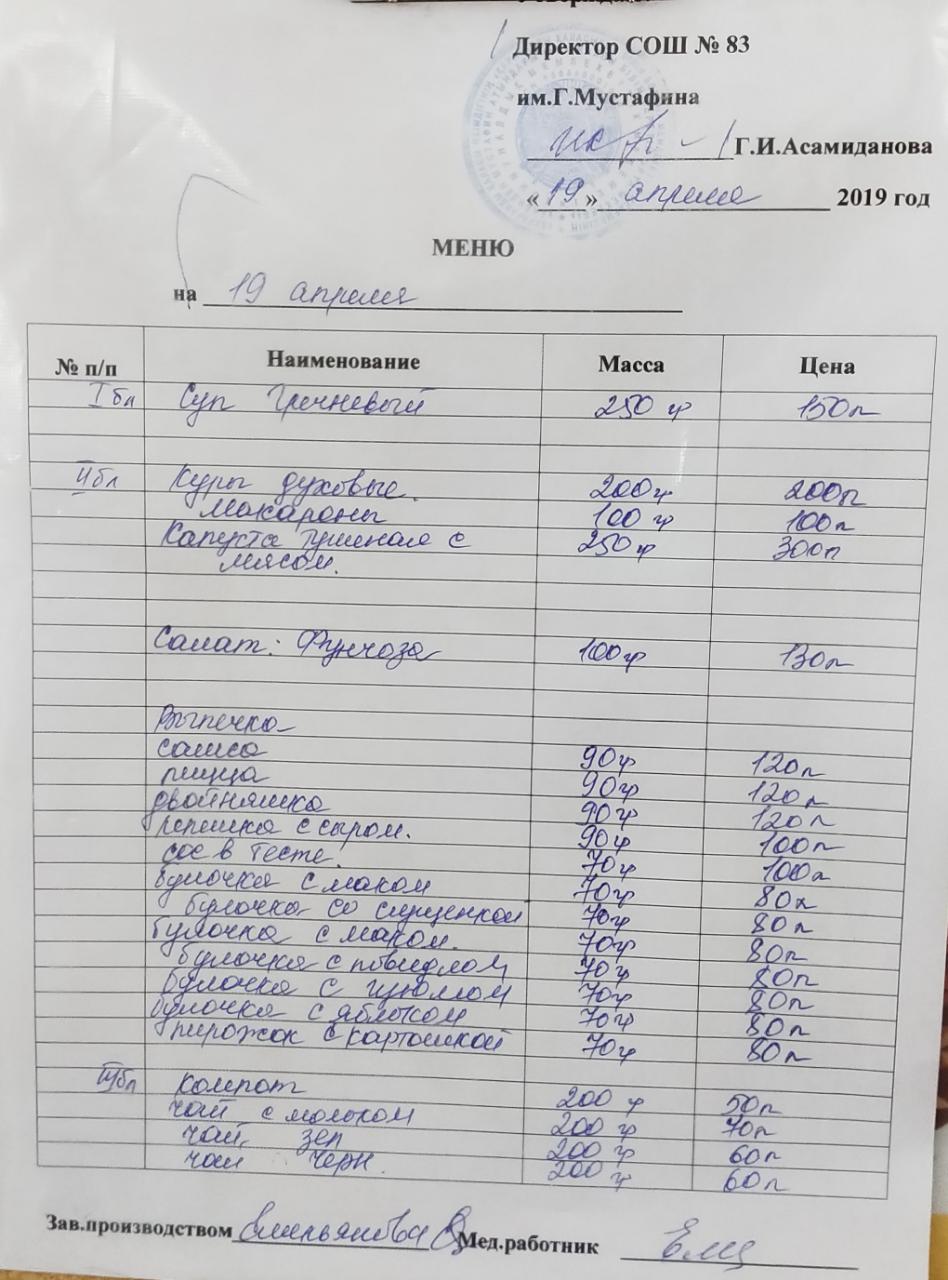 Директор СОШ № 83
им.Г.Мустафина
Г.И.Асамиданова
« 19 » апреля 2019 год
МЕНЮ
на 19 апреля
№ п/п Наименование Масса Цена
I бл Суп Гречневый 250 гр 150п
II бл Куры духовые. 200гр 200п
макароны 100 гр 100п
Капуста тушеная с 250гр 300п
мясом.
Салат: Фунчоза 100гр 130п
Выпечка
самса 90гр 120п
пицца 90гр 120п
двойняшка 90гр 120п
лепешка с сыром. 90гр 100п
сос в тесте. 70гр 100п
булочка с маком 70гр 80п
булочка со сгущенкой 70гр 80п
булочка с маком. 70гр 80п
булочка с повидлом 70гр 80п
булочка с изюмом 70гр 80п
булочка с яблоком 70гр 80п
пирожок с картошкой 70гр 80п
III бл Компот 200 гр 50п
чай с молоком 200 гр 70п
чай зел 200 гр 60п
чай черн. 200 гр 60п
Зав.производством Емельянова Мед.работник